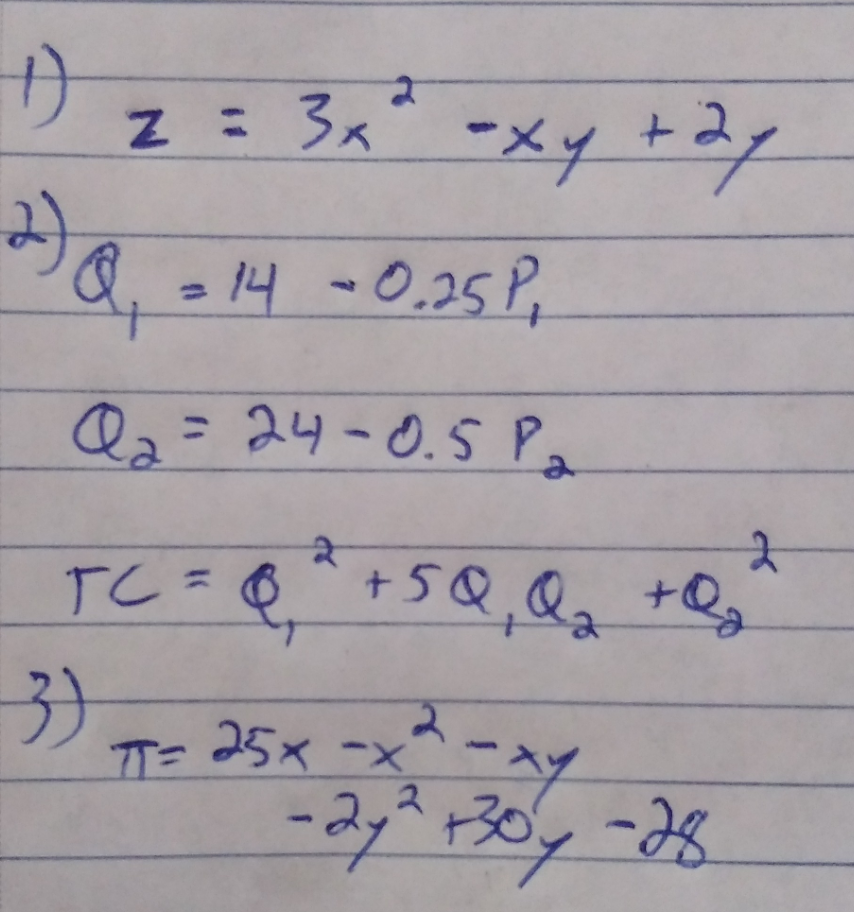 1)
z = 3x² - xy + 2y
2)
Q₁ = 14 - 0.25P₁
Q₂ = 24 - 0.5 P₂
TC = Q₁² + 5Q₁Q₂ + Q₂²
3)
π = 25x - x² - xy
- 2y² + 30y - 28